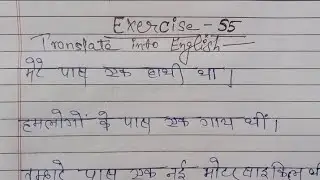 Exercise - 55
Translate into English —
मेरे पास एक हाथी था।
हमलोगों के पास एक गाय थी।
तुम्हारे पास एक नई मोटर साइकिल थी